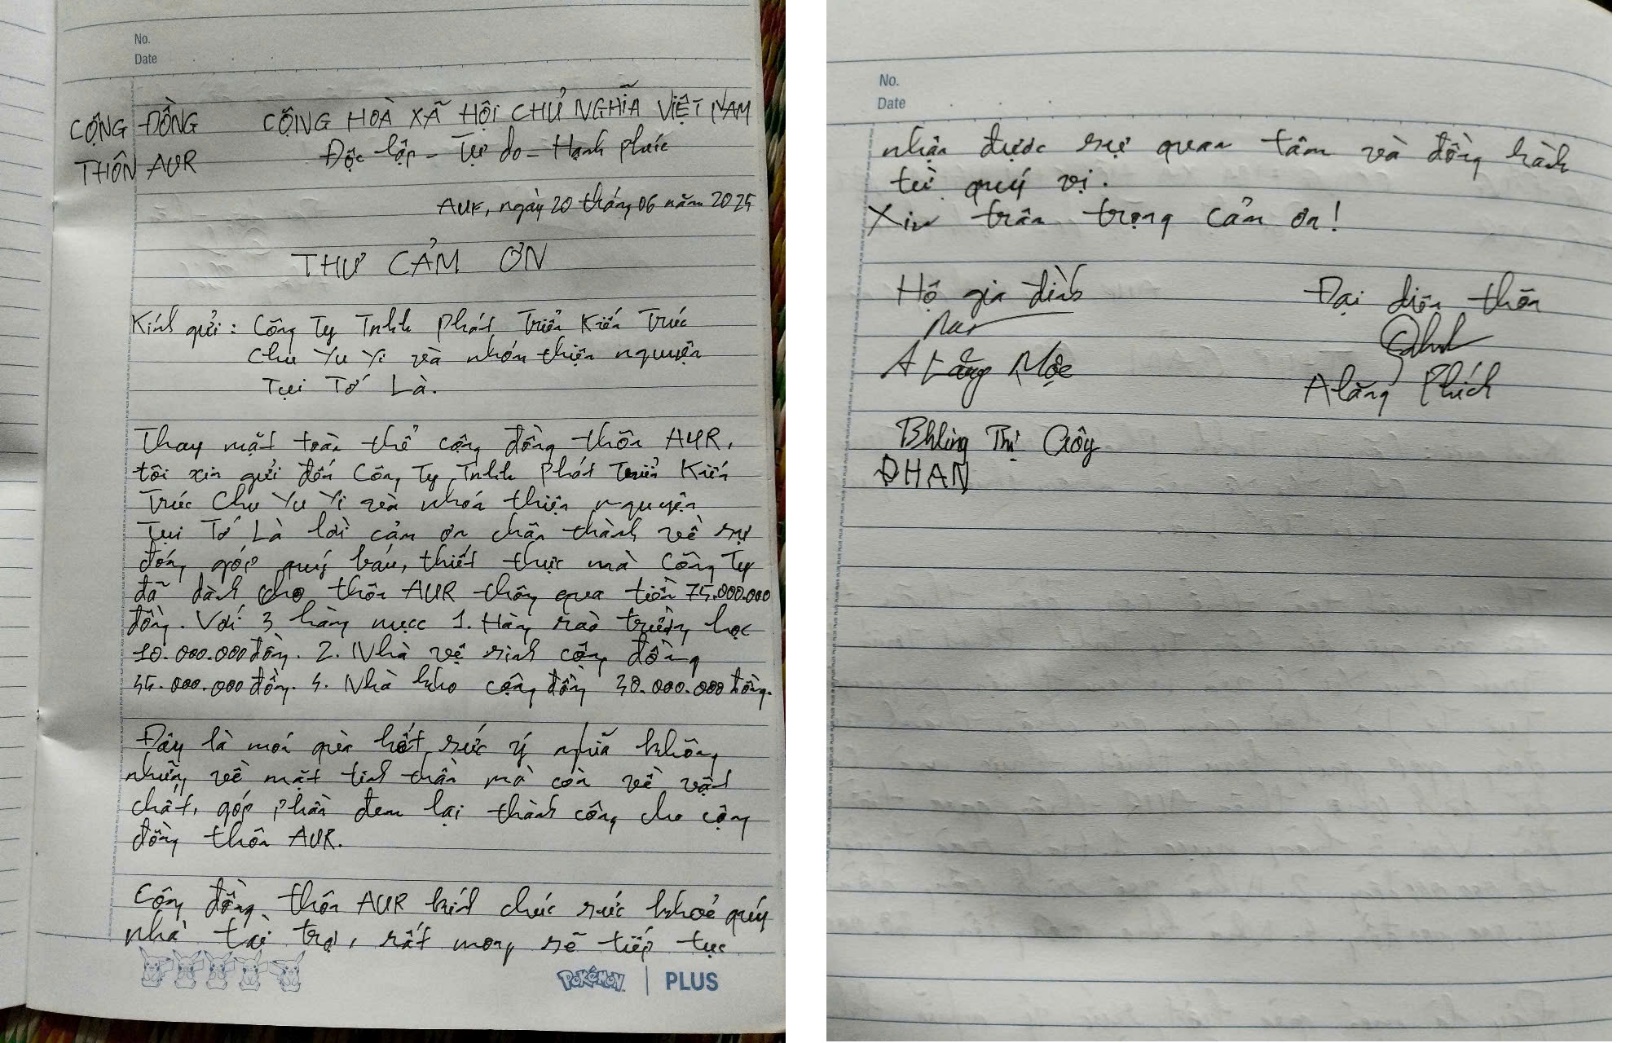 No.
Date
CỘNG ĐỒNG CỘNG HOÀ XÃ HỘI CHỦ NGHĨA VIỆT NAM
THÔN AUR Độc lập - Tự do - Hạnh phúc
AUR, ngày 20 tháng 06 năm 2025
THƯ CẢM ƠN
Kính gửi: Công Ty Tnhh Phát Triển Kiến Trúc
Chu Yu Yi và nhóm thiện nguyện
Tụi Tớ Là.
Thay mặt toàn thể cộng đồng thôn AUR,
tôi xin gửi đến Công Ty Tnhh Phát Triển Kiến
Trúc Chu Yu Yi và nhóm thiện nguyện
Tụi Tớ Là lời cảm ơn chân thành về sự
đóng góp quý báu, thiết thực mà Công Ty
đã dành cho thôn AUR thông qua tiền 75.000.000
đồng. Với 3 hàng mục 1. Hàng rào trường học
10.000.000 đồng. 2. Nhà vệ sinh cộng đồng
35.000.000 đồng. 3. Nhà kho cộng đồng 30.000.000 đồng.
Đây là mói quà hết sức ý nghĩa không
những về mặt tinh thần mà còn về vật
chất, góp phần đem lại thành công cho cộng
đồng thôn AUR.
Cộng đồng thôn AUR kính chúc sức khoẻ quý
nhà tài trợ, rất mong sẽ tiếp tục
POKÉMON | PLUS
No.
Date
nhận được sự quan tâm và đồng hành
từ quý vị.
Xin trân trọng cảm ơn!
Hộ gia đình Đại diện thôn
A Lăng Mộc Alăng Phích
Bhling Thị
ĐHAN